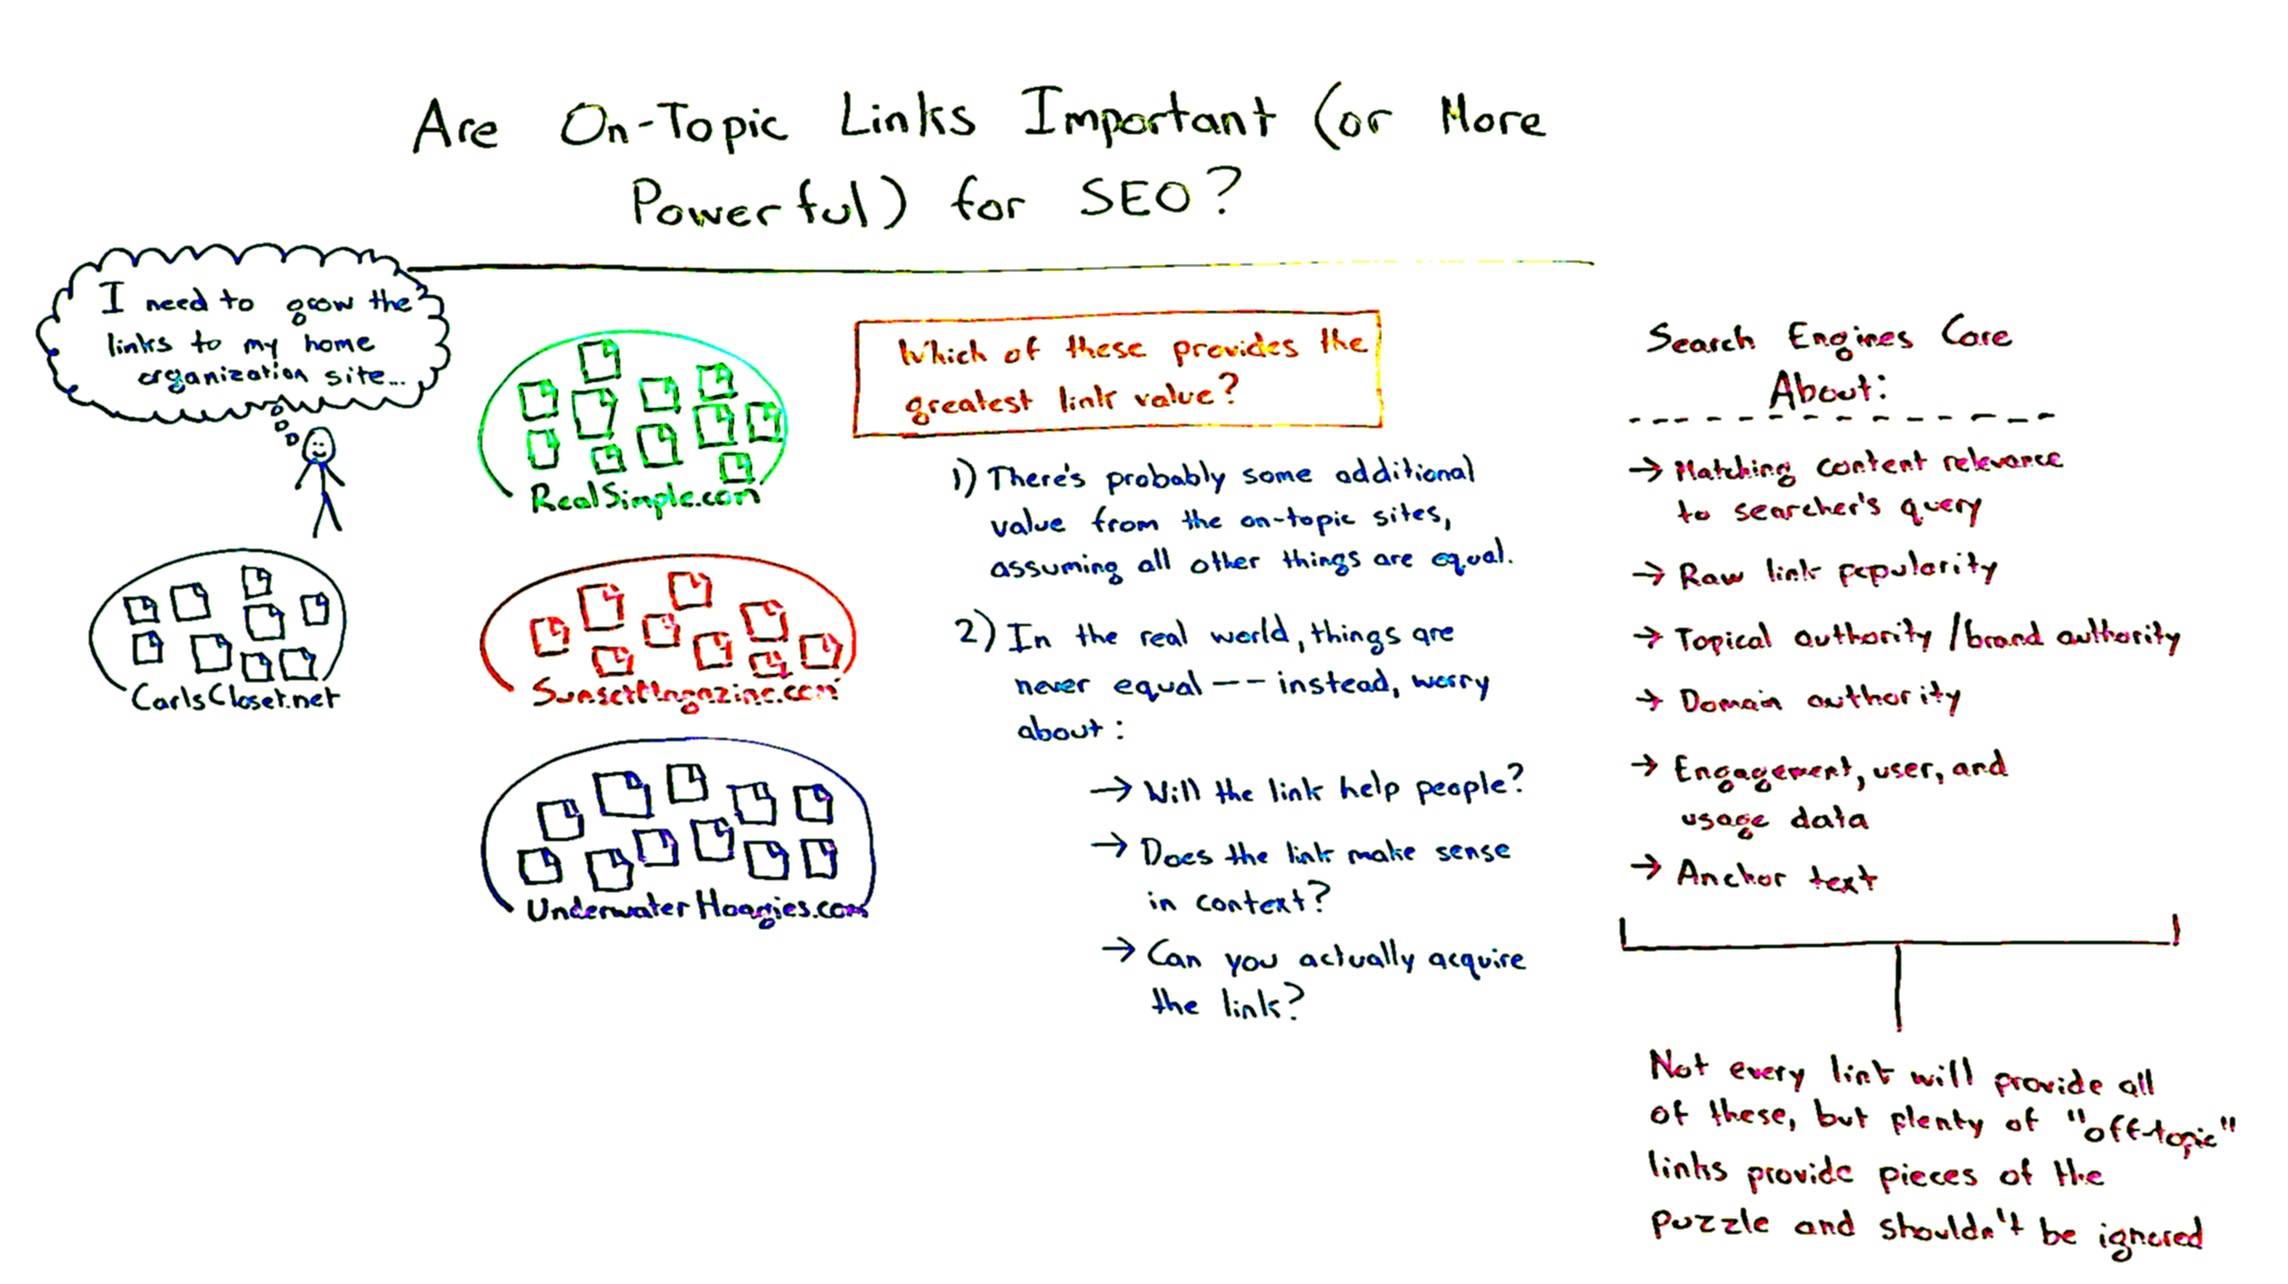 Are On-Topic Links Important (or More
Powerful) for SEO?
I need to grow the
links to my home
organization site...
CarlsCloset.net
RealSimple.com
SunsetMagazine.com
UnderwaterHoagies.com
Which of these provides the
greatest link value?
1) There's probably some additional
value from the on-topic sites,
assuming all other things are equal.
2) In the real world, things are
never equal -- instead, worry
about:
→ Will the link help people?
→ Does the link make sense
in context?
→ Can you actually acquire
the link?
Search Engines Care
About:
→ Matching content relevance
to searcher's query
→ Raw link popularity
→ Topical authority/brand authority
→ Domain authority
→ Engagement, user, and
usage data
→ Anchor text
Not every link will provide all
of these, but plenty of "off-topic"
links provide pieces of the
puzzle and shouldn't be ignored